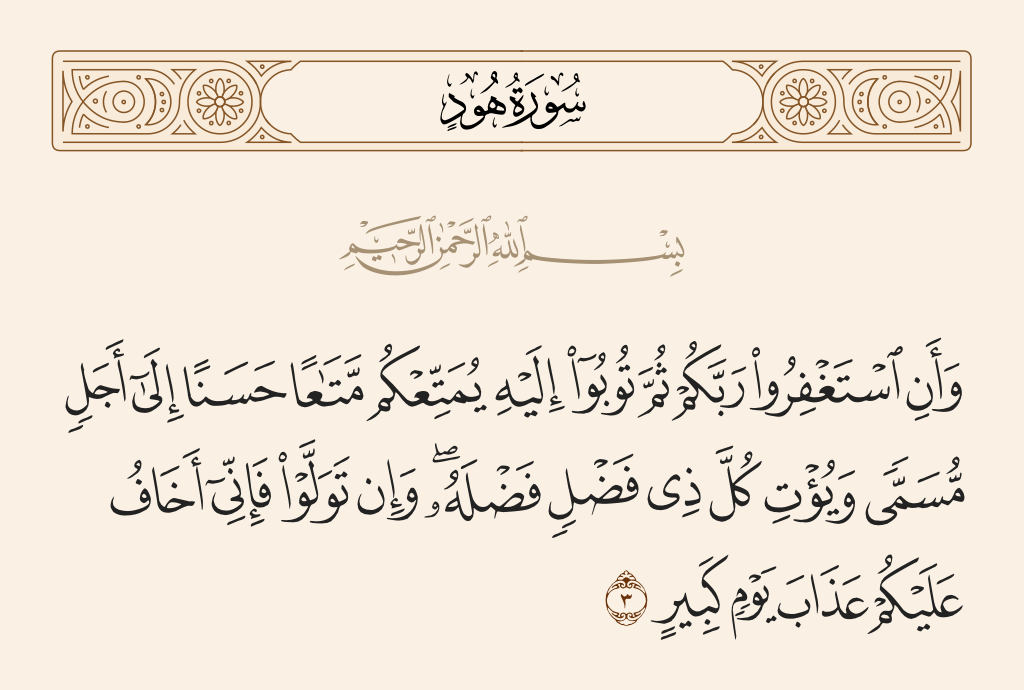 سُورَةُ هُودٍ
بِسْمِ ٱللَّهِ ٱلرَّحْمَٰنِ ٱلرَّحِيمِ
وَأَنِ ٱسْتَغْفِرُوا۟ رَبَّكُمْ ثُمَّ تُوبُوٓا۟ إِلَيْهِ يُمَتِّعْكُم مَّتَـٰعًا حَسَنًا إِلَىٰٓ أَجَلٍ
مُّسَمًّى وَيُؤْتِ كُلَّ ذِى فَضْلٍ فَضْلَهُۥ ۖ وَإِن تَوَلَّوْا۟ فَإِنِّىٓ أَخَافُ
عَلَيْكُمْ عَذَابَ يَوْمٍ كَبِيرٍ ٣